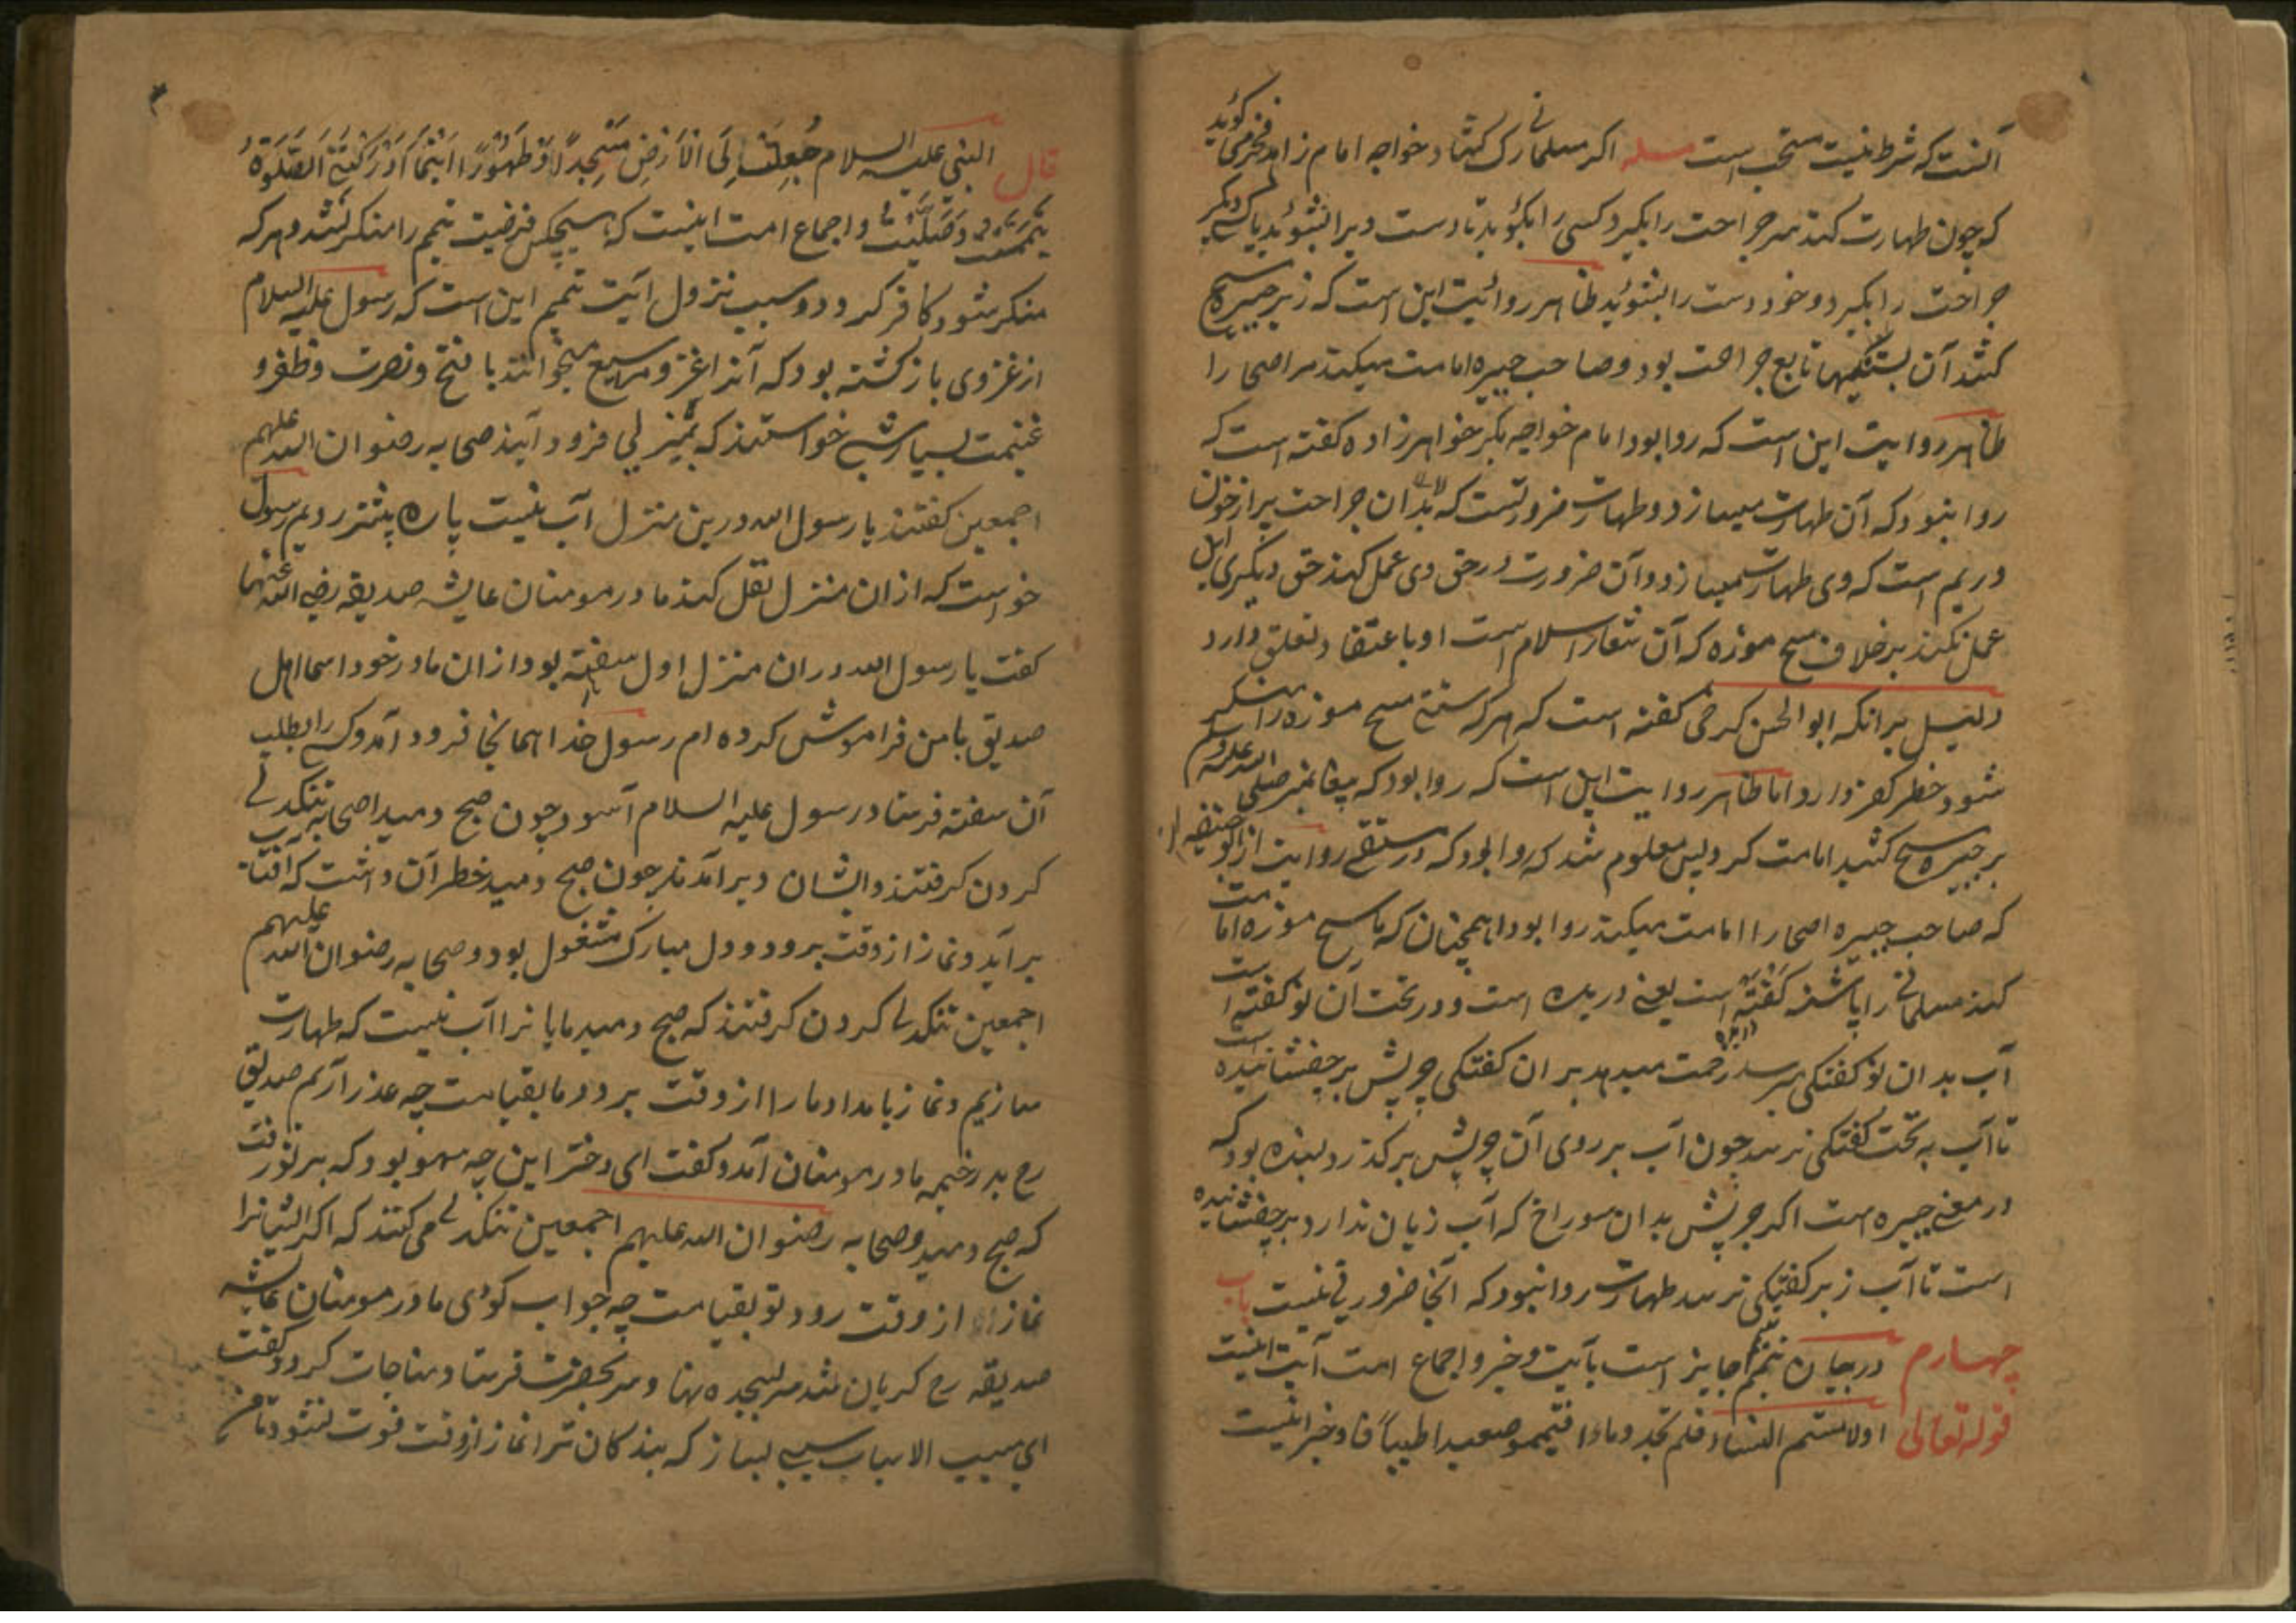 آنست که شرط نیست مستحب است مسله اکر مسلمانی رک کشاد خواجه امام زاهد فخر می کوید
که چون طهارت کند سر جراحت را بکیرد و کسی را بکوید تا دست ویرا بشوید یا کسی دیکر
جراحت را بکیرد و خود دست را بشوید ظاهر روائیت این است که زبر جبیره مسح
کشد آن بستکیها تابع جراحت بود و صاحب جبیره امامت میکند مر اصحا را
ظاهر روایت این است که روا بود امام خواجه بکر خواهرزاده کفته است که
روا نبود که آن طهارت میسازد و طهارت ضرورتست که بدان جراحت پر از خون
و ریم است که وی طهارت میسازد و آن ضرورت در حق وی عمل کند حق دیکری
عمل نکند بر خلاف مسح موزه که آن شعار اسلام است او با عتقاد تعلق دارد
دلیل برانکه ابو الحسن کرخی کفته است که هر که سنت مسح موزه را منکر
شود خطر کفر دارد اما ظاهر روایت است که روا بود که پیغامبر صلی الله علیه و سلم
بر جبیره مسح کشید امامت کرد پس معلوم شد که روا بود که در روایت از ابو حنیفه
که صاحب جبیره اصحا را امامت میکند روا بود همچنان که ماسح موزه امامت
کند مسلمانی را پاشنه کفته است یعنی دریده است و در تحت آن نو کفته است
آب بدان نو کفتکی میرسد زحمت میدهد بران کفتکی چربش بر چفشانیده است
تا آب به تحت کفتکی نرسد چون آب بر روی آن چربش بر کذرد بسنده بود که
در معنی جبیره است اکر چربش بدان سوراخ که آب زیان ندارد بر چفشانیده
است تا آب زبر کفتیکی نرسد طهارت روا نبود که آنجا ضرورتی نیست باب
چهارم در بیان تیمم جایز است بآیت و خبر و اجماع امت آیت اینست
قوله تعالی اولامستم النساء فلم تجدوا ماءا فتیمموا صعیدا طیبا و خبر اینست
قال النبی علیه السلام جُعِلَت لِیَ الاَرْضِ مَسْجِداً وَ طَهُوْرًا اَیْنَمَا اَدْرَکَتْنِیَ الصَّلوٰةُ
تَیَمَّمْتُ وَ صَلَّیْتُ و اجماع امت اینست که هیچکس فرضیت تیمم را منکر نشد و هر که
منکر شود کافر کردد و سبب نزول آیت تیمم این است که رسول علیه السلام
از غزوی باز کشته بود که آنرا غزو مریسیع میخوانند با فتح و نصرت و ظفر و
غنیمت بسیار شبی خواستند که بمنزلی فرود آیند صحابه رضوان الله علیهم
اجمعین کفتند یا رسول الله درین منزل آب نیست پاره پیشتر رویم رسول
خواست که از ان منزل نقل کند مادر مومنان عایشه صدیقه رضی الله عنهما
کفت یا رسول الله در ان منزل اول سفته بود از ان مادر خود اسما اهل
صدیق با من فراموش کرده ام رسول خدا همانجا فرود آمد و کسی را بطلب
آن سفته فرستاد رسول علیه السلام آسود چون صبح دمید اصحابه تنکدلی
کردن کرفتند و ایشان دیر آمدند چون صبح دمید خطر آن داشت که آفتاب
بر آید و نماز از وقت برود و دل مبارک مشغول بود و صحابه رضوان الله علیهم
اجمعین تنکدلی کردن کرفتند که صبح دمید ما یانرا آب نیست که طهارت
سازیم و نماز بامداد ما را از وقت برود ما بقیامت چه عذر آریم صدیق
رح بدر خیمه مادر مومنان آمد و کفت ای دختر این چه سهو بود که بر تو رفت
که صبح دمید و صحابه رضوان الله علیهم اجمعین تنکدلی می کنند که اکر ایشانرا
نماز از وقت رود تو بقیامت چه جواب کوئی مادر مومنان عایشه
صدیقه رح کریان شد سر بسجده نهاد و سر بحضرت فرستاد مناجات کرد و کفت
ای مسبب الاسباب سببی بساز که بندکان ترا نماز از وقت فوت نشود تا من